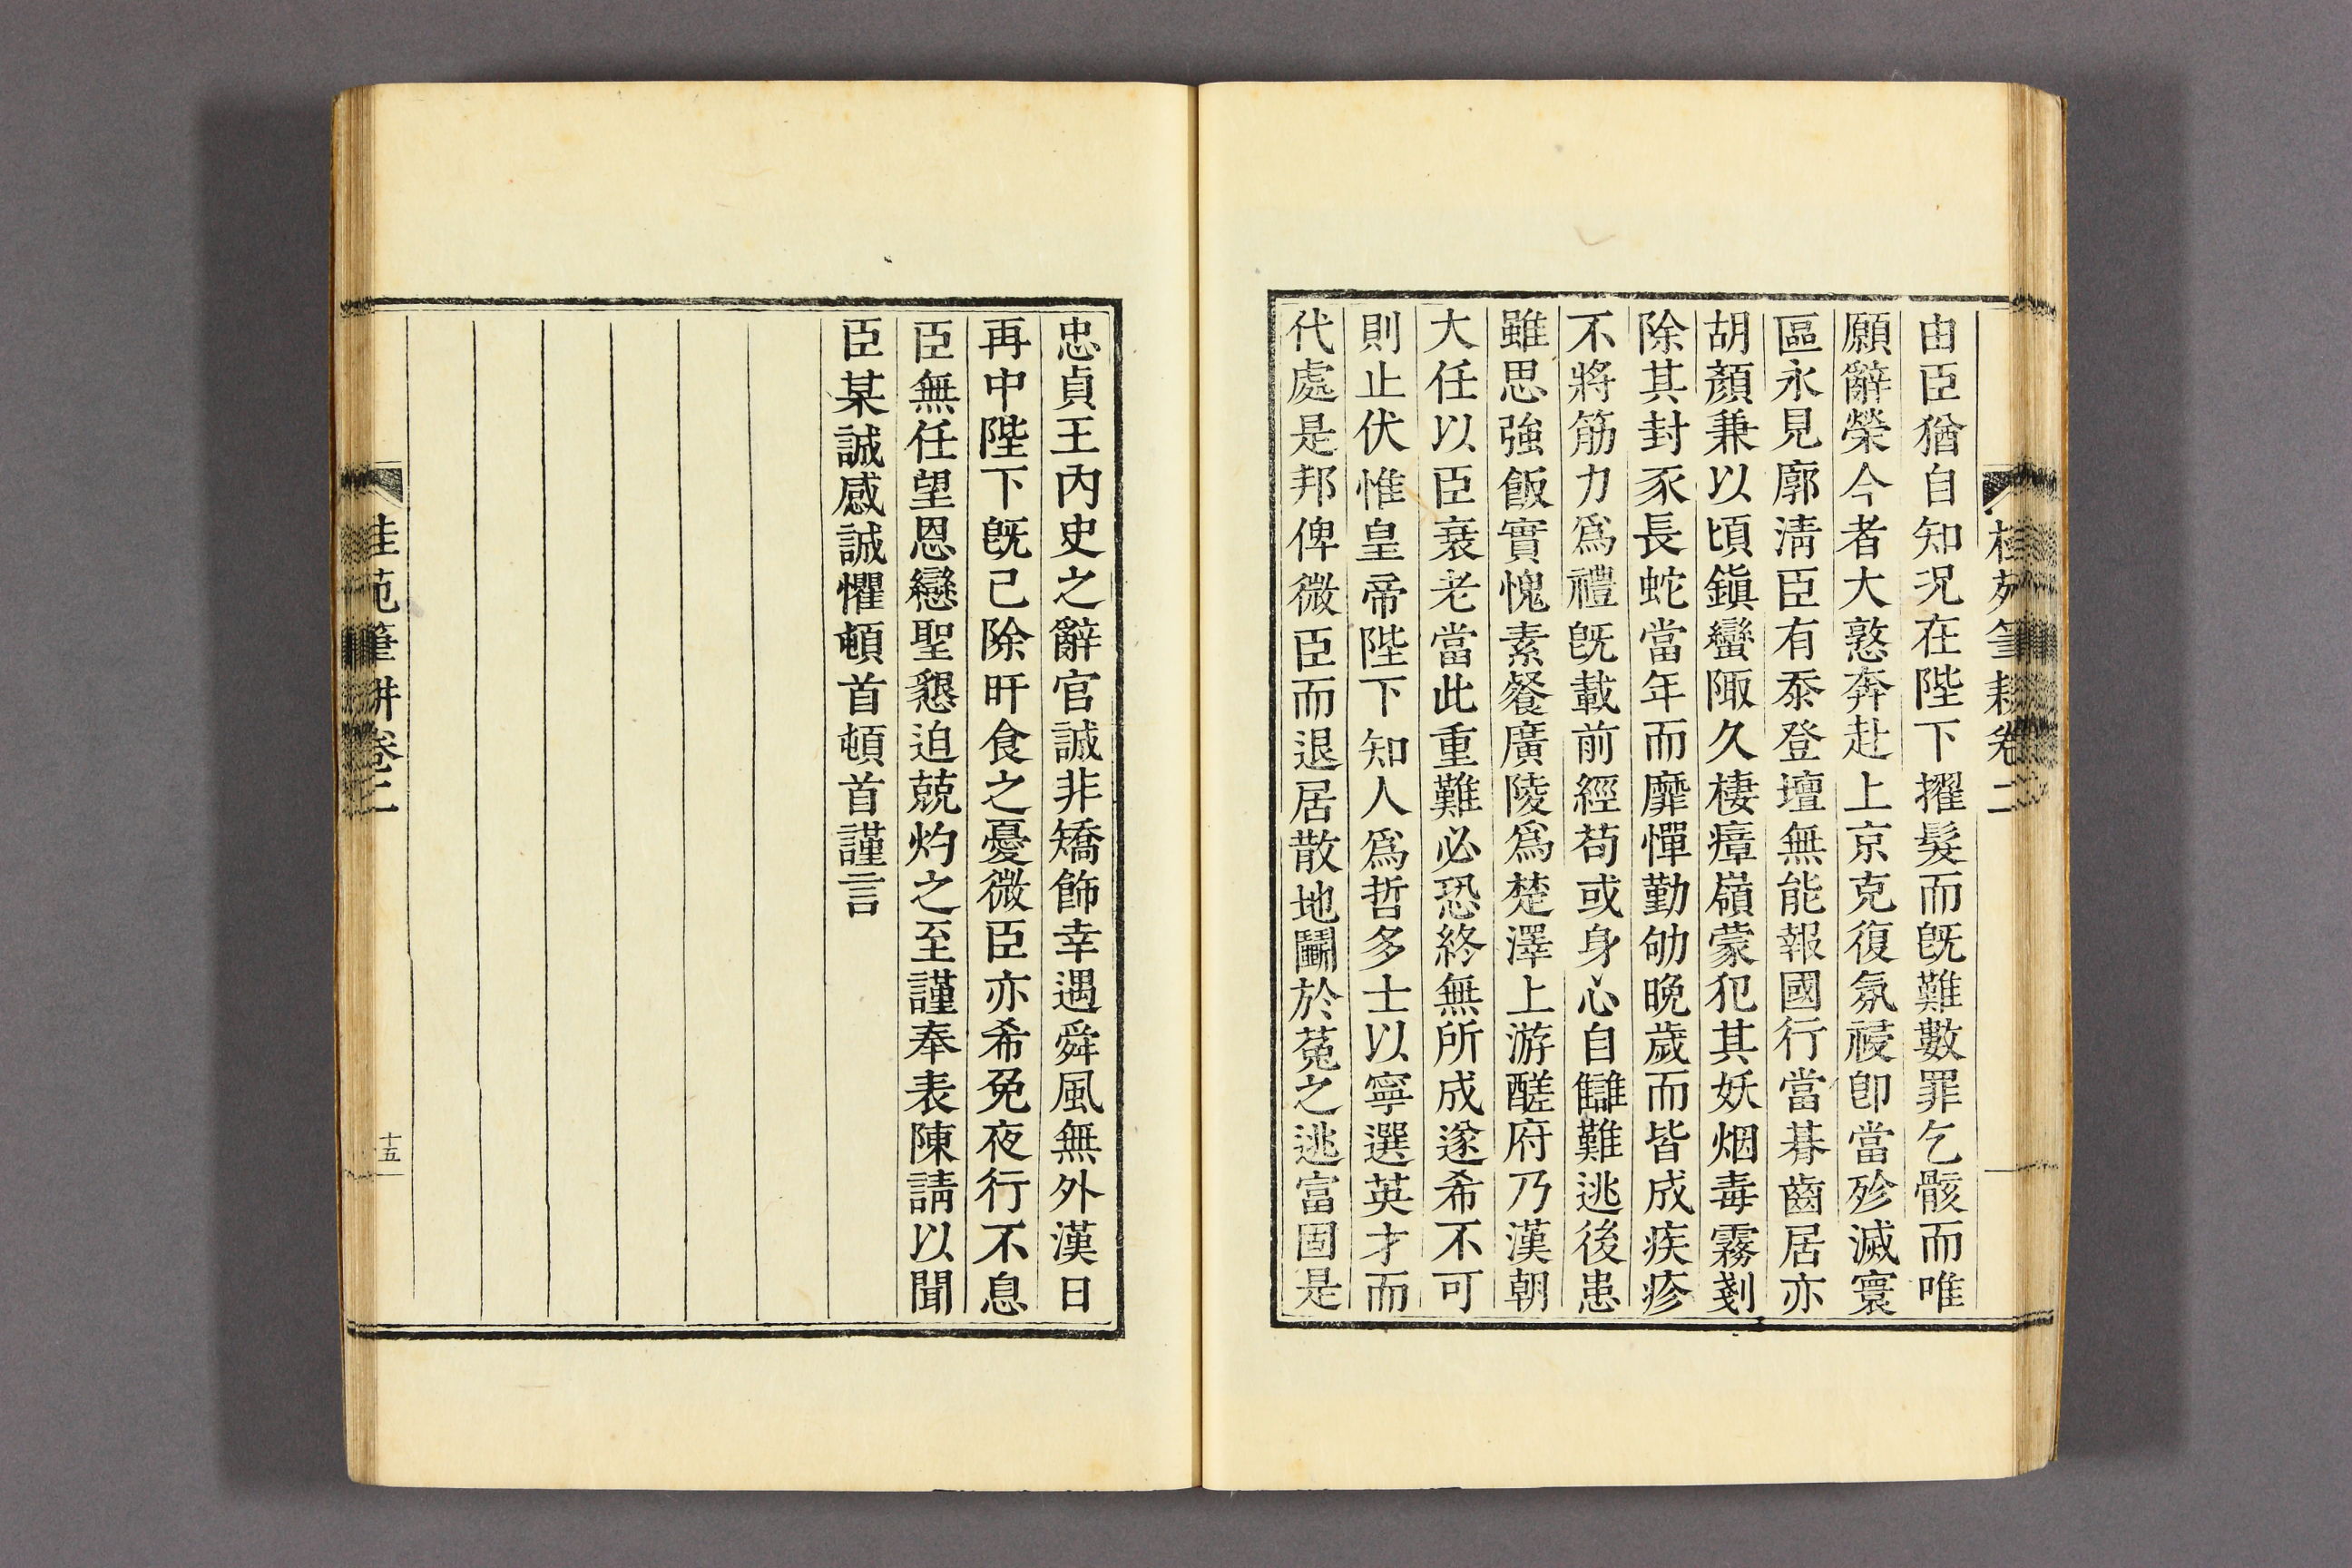 桂苑筆耕卷二
由臣猶自知况在陛下擢髮而旣難數罪乞骸而唯
願辭榮今者大憝奔赴上京克復氛祲卽當殄滅寰
區永見廓淸臣有忝登壇無能報國行當暮齒居亦
胡顏兼以頃鎭蠻陬久棲瘴嶺蒙犯其妖烟毒霧剗
除其封豕長蛇當年而靡憚勤劬晩歲而皆成疾疹
不將筋力爲禮旣載前經苟或身心自讎難逃後患
雖思強飯實愧素餐廣陵爲楚澤上游醝府乃漢朝
大任以臣衰老當此重難必恐終無所成遂希不可
則止伏惟皇帝陛下知人爲哲多士以寧選英才而
代處是邦俾微臣而退居散地鬬於菟之逃富固是
忠貞王內史之辭官誠非矯飾幸遇舜風無外漢日
再中陛下旣已除旰食之憂微臣亦希免夜行不息
臣無任望恩戀聖懇迫兢灼之至謹奉表陳請以聞
臣某誠感誠懼頓首頓首謹言
桂苑筆耕卷二
十五